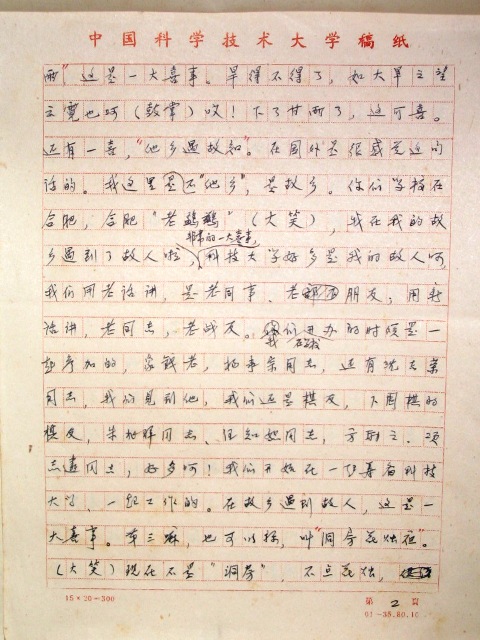 中国科学技术大学稿纸
雨”这是一大喜事。旱得不得了，如大旱之望
云霓也呵（鼓掌）哎！下了甘雨了，这可喜。
还有一喜，“他乡遇故知”。在国外是很感觉这句
话的。我这里是不“他乡”，是故乡。你们学校在
合肥，合肥“老（大笑），我在我的故
非常的一大喜事，
乡遇到了故人啦，科技大学好多是我的故人呵，
我们用老话讲，是老同事、老朋友；用新
话讲，老同志，老战友。我们在办的时候是一
起参加的，家钱老，同志，还有
同志，我们见到他，我们还是棋友，下围棋的
棋友，同志、同志，
同志，好多呵！我们开始在一起筹备科技
大学，一起工作的。在故乡遇到故人，这是一
大喜事。第三嘛，也可以称，叫“洞房花烛夜”。
（大笑）现在不是“洞房”，不点花烛，
15×20=300
第2页